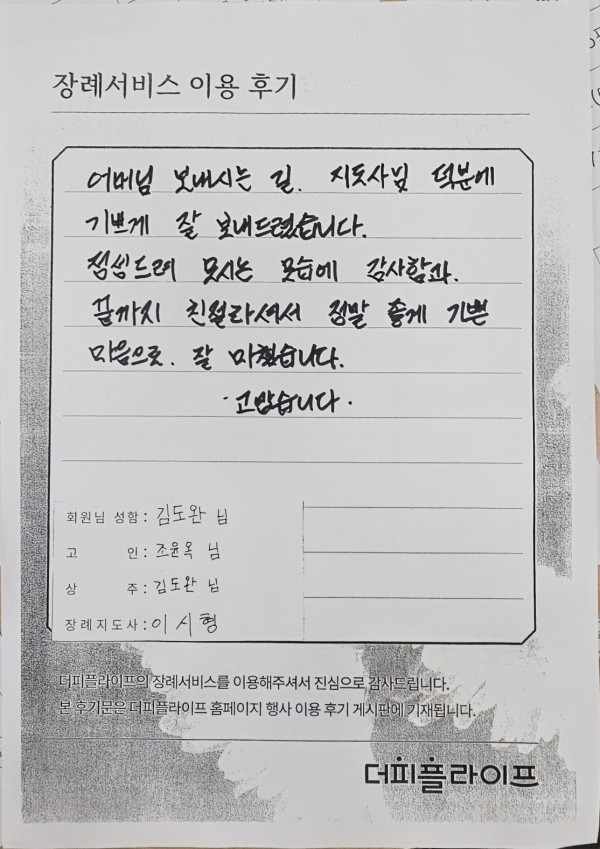 장례서비스 이용 후기
어머님 보내시는 길. 지도사님 덕분에
기쁘게 잘 보내드렸습니다.
정성드려 모시는 모습에 감사함과.
끝까지 친절하셔서 정말 좋게 기쁜
마음으로. 잘 마쳤습니다.
·고맙습니다·
회원님 성함 : 김도완 님
고 인 : 조윤옥 님
상 주 : 김도완 님
장례지도사 : 이시형
더피플라이프의 장례서비스를 이용해주셔서 진심으로 감사드립니다.
본 후기문은 더피플라이프 홈페이지 행사 이용 후기 게시판에 기재됩니다.
더피플라이프